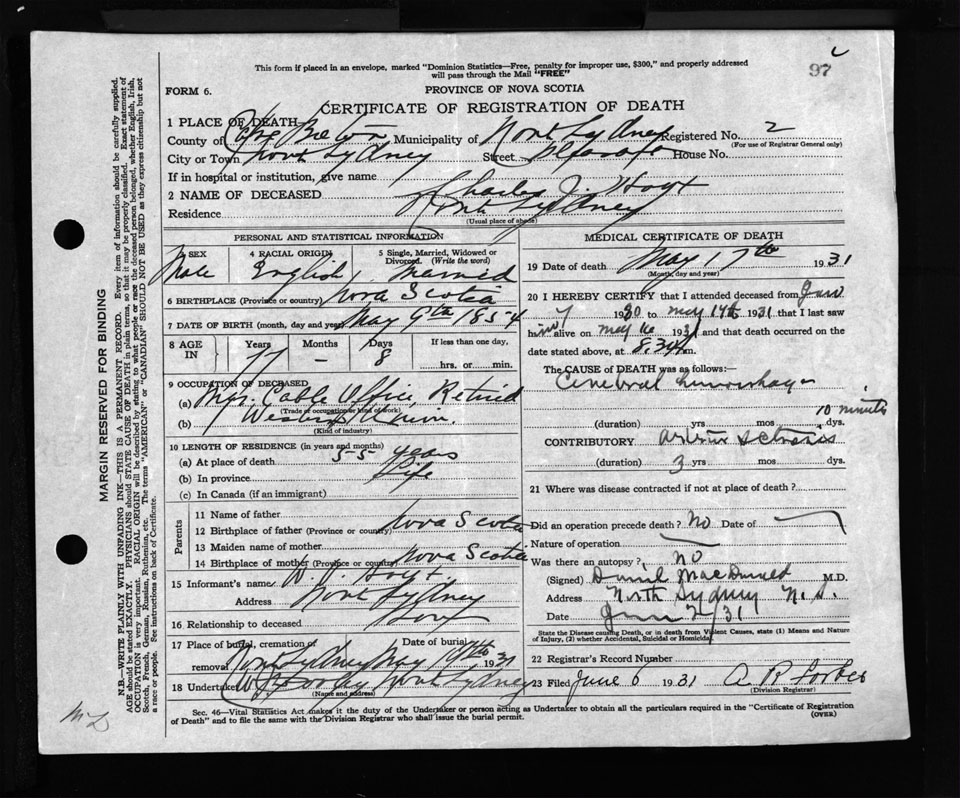 This form if placed in an envelope, marked "Dominion Statistics—Free, penalty for improper use, $300," and properly addressed
will pass through the Mail "FREE"
97
FORM 6.
PROVINCE OF NOVA SCOTIA
CERTIFICATE OF REGISTRATION OF DEATH
1 PLACE OF DEATH
County of Cape Breton Municipality of North Sydney Registered No. 2
(For use of Registrar General only)
City or Town North Sydney Street House No.
If in hospital or institution, give name
2 NAME OF DECEASED Charles J. Hoyt
Residence North Sydney
(Usual place of abode)
PERSONAL AND STATISTICAL INFORMATION
3 SEX 4 RACIAL ORIGIN 5 Single, Married, Widowed or Divorced. (Write the word)
Male English Married
6 BIRTHPLACE (Province or country) Nova Scotia
7 DATE OF BIRTH (month, day and year) May 9th 1854
8 AGE IN Years Months Days If less than one day,
77 – 8 hrs. or min.
9 OCCUPATION OF DECEASED
(a) Mgr. Cable Office, Retired
(Trade or occupation or kind of work)
(b) Western Union.
(Kind of industry)
10 LENGTH OF RESIDENCE (in years and months)
(a) At place of death 55 years
(b) In province Life
(c) In Canada (if an immigrant)
Parents
11 Name of father
12 Birthplace of father (Province or country) Nova Scotia
13 Maiden name of mother
14 Birthplace of mother (Province or country) Nova Scotia
15 Informant's name Hoyt
Address North Sydney
16 Relationship to deceased Son
17 Place of burial, cremation or removal North Sydney Date of burial May 19th 1931
18 Undertaker North Sydney
(Name and address)
MEDICAL CERTIFICATE OF DEATH
19 Date of death May 17th 1931
(Month, day and year)
20 I HEREBY CERTIFY that I attended deceased from
7 1930 to May 17th 1931 that I last saw
him alive on May 16 1931 and that death occurred on
date stated above, at 8.30 m.
The CAUSE OF DEATH was as follows:—
Cerebral hemorrhage
10 minutes
(duration) yrs mos dys.
CONTRIBUTORY
(duration) 3 yrs mos dys.
21 Where was disease contracted if not at place of death?
Did an operation precede death? No Date of
Nature of operation
Was there an autopsy? No
(Signed) Daniel MacDonald M.D.
Address North Sydney N.S.
Date June 2/31
State the Disease causing Death, or in death from Violent Causes, state (1) Means and Nature
of Injury, (2) whether Accidental, Suicidal or Homicidal.
22 Registrar's Record Number
23 Filed June 6 1931 A R Forbes
(Division Registrar)
Sec. 46—Vital Statistics Act makes it the duty of the Undertaker or person acting as Undertaker to obtain all the particulars required in the "Certificate of Registration
of Death" and to file the same with the Division Registrar who shall issue the burial permit.
(OVER)
MARGIN RESERVED FOR BINDING
N.B.—WRITE PLAINLY WITH UNFADING INK—THIS IS A PERMANENT RECORD. Every item of information should be carefully supplied.
AGE should be stated EXACTLY. PHYSICIANS should STATE CAUSE OF DEATH in plain terms, so that it may be properly classified. Exact statement of
OCCUPATION is very important. RACIAL ORIGIN will be described by stating to what people or race the deceased person belonged, whether English, Irish,
Scotch, French, German, Russian, Ruthenian, etc. The terms "AMERICAN" or "CANADIAN" SHOULD NOT BE USED as they express citizenship but not
a race or people. See instructions on back of Certificate.